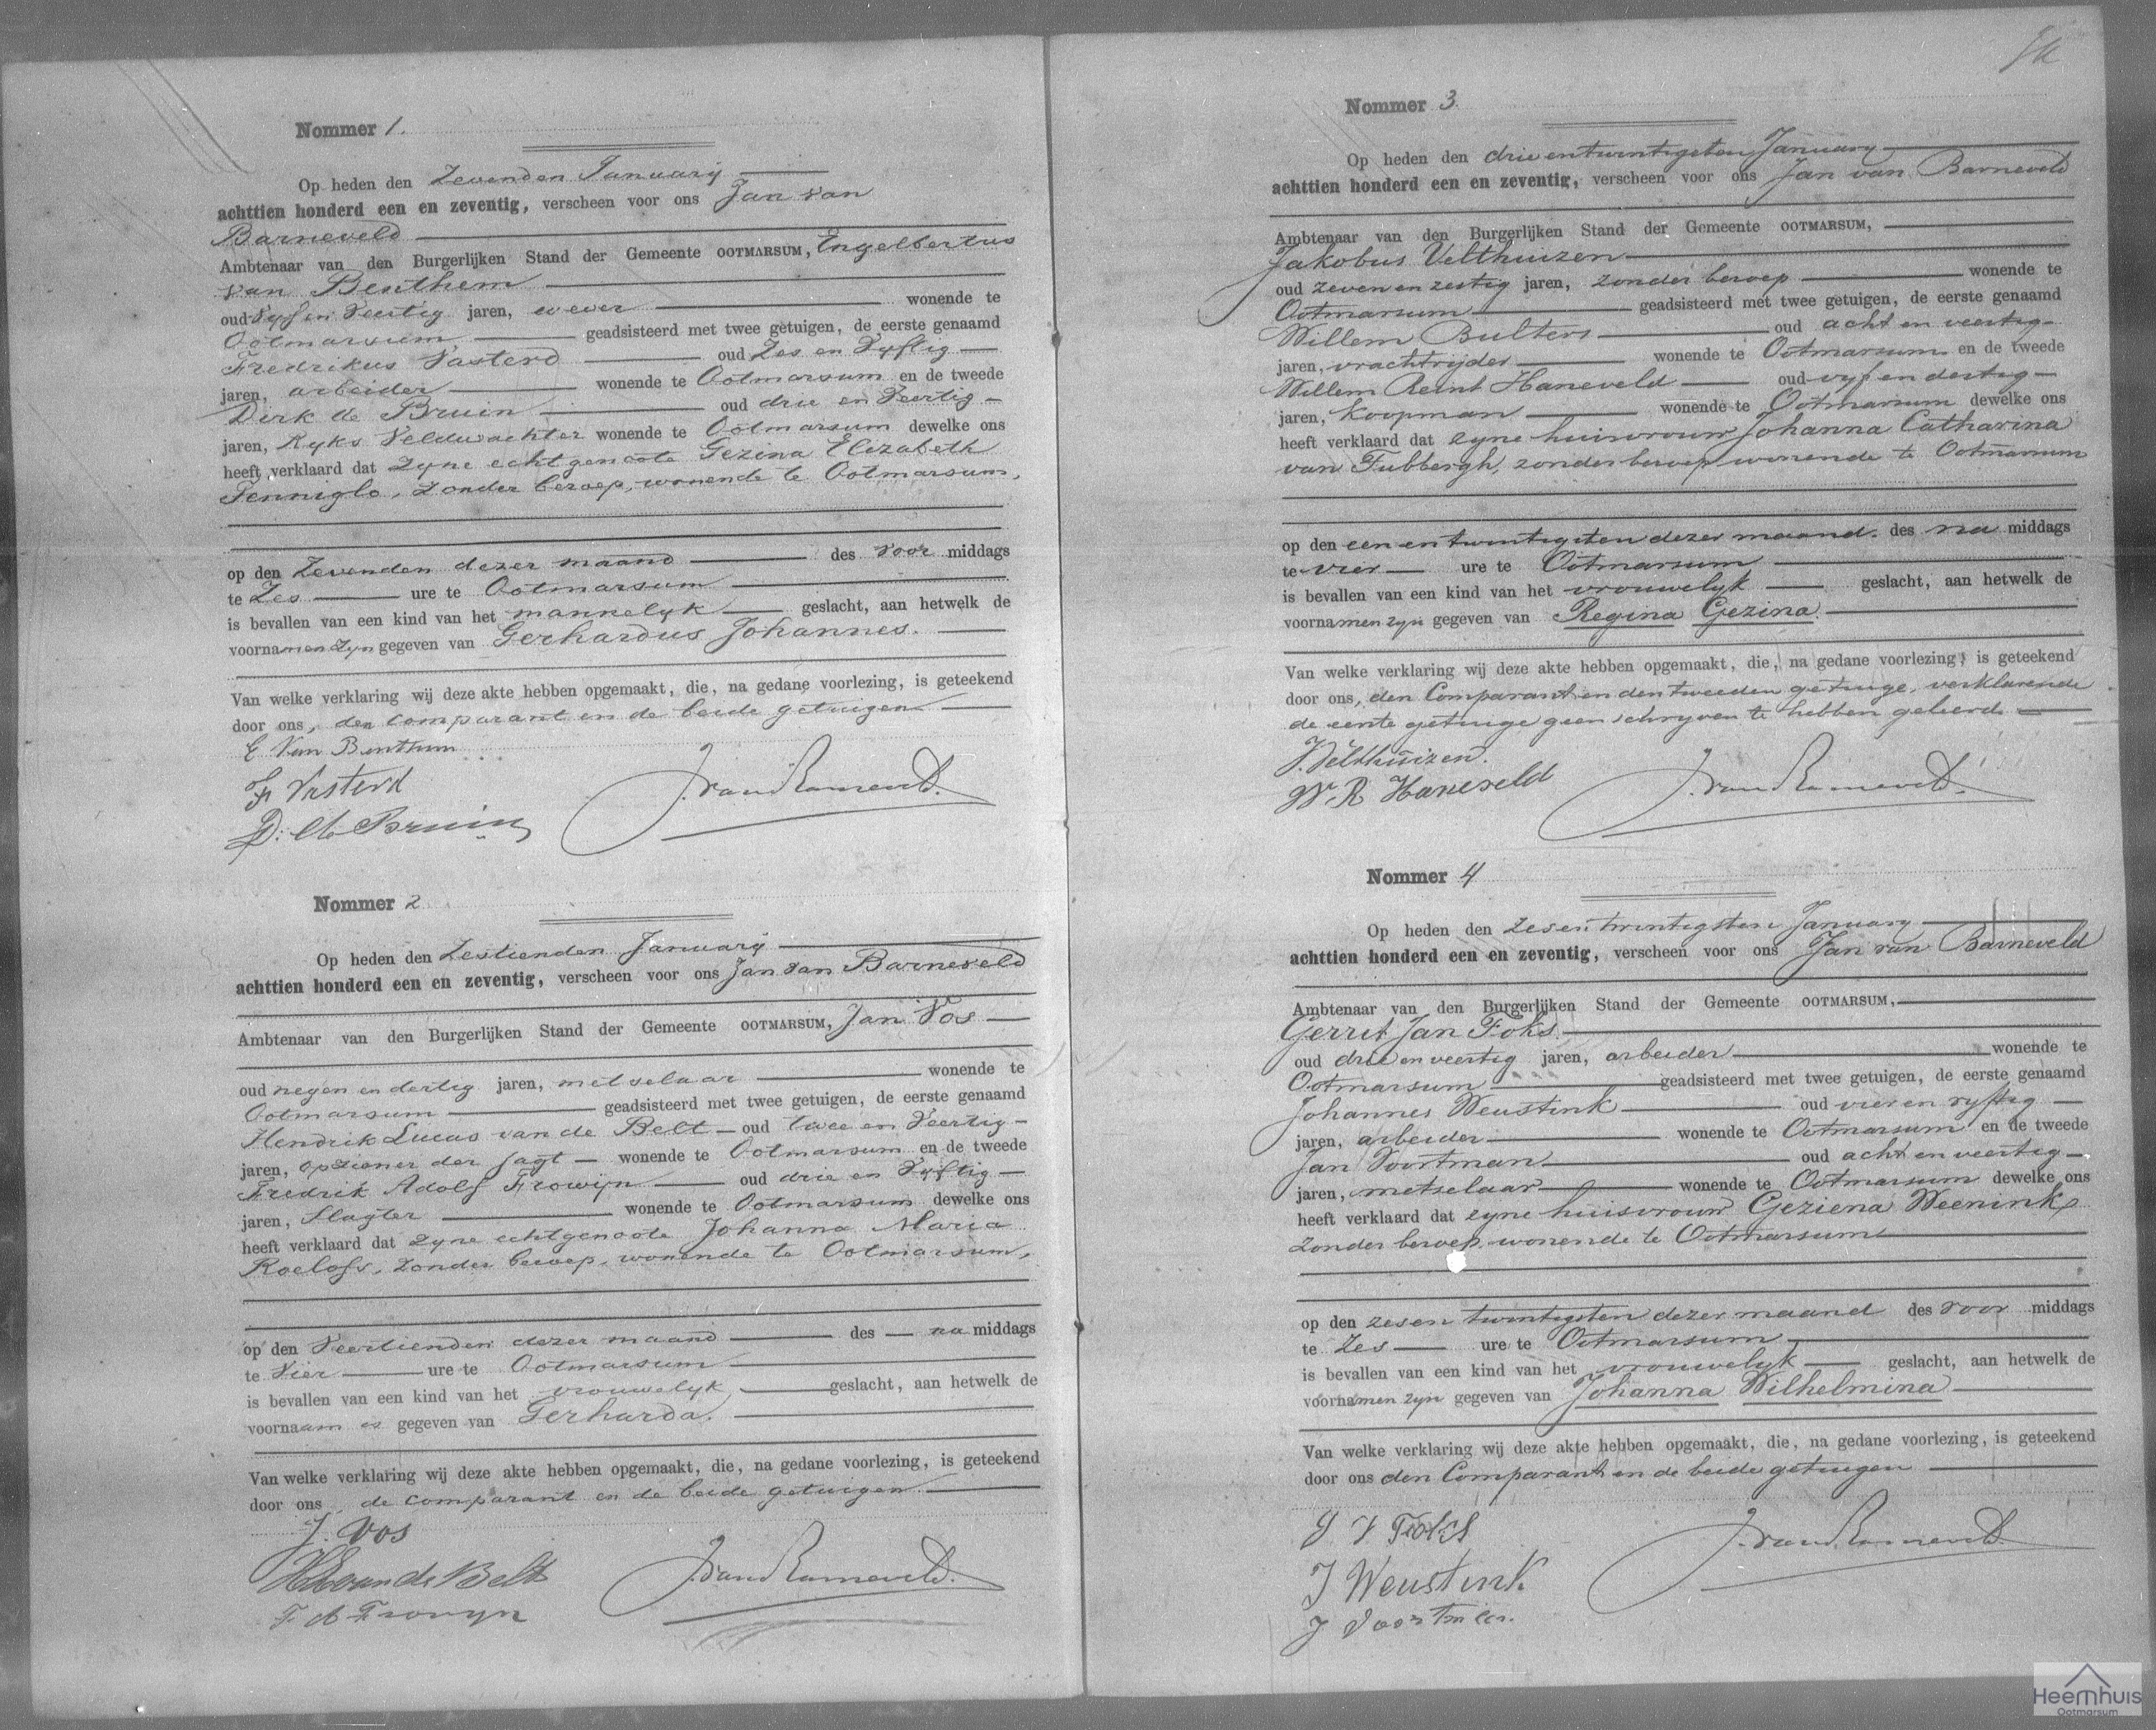 Nommer 1.
Op heden den Zevenden Januarij
achttien honderd een en zeventig, verscheen voor ons Jan van
Barneveld
Ambtenaar van den Burgerlijken Stand der Gemeente OOTMARSUM, Engelbertus
van Benthem
oud Vyf en Veertig jaren, wever wonende te
Ootmarsum geadsisteerd met twee getuigen, de eerste genaamd
Fredrikus Vasterd oud Zes en Vyftig
jaren, arbeider wonende te Ootmarsum en de tweede
Dirk de Bruin oud drie en Veertig
jaren, Ryks Veldwachter wonende te Ootmarsum dewelke ons
heeft verklaard dat zyne echtgenoote Gezina Elizabeth
Penniglo, zonder beroep, wonende te Ootmarsum,
op den Zevenden dezer maand des voor middags
te Zes ure te Ootmarsum
is bevallen van een kind van het mannelyk geslacht, aan hetwelk de
voornamen zyn gegeven van Gerhardus Johannes.
Van welke verklaring wij deze akte hebben opgemaakt, die, na gedane voorlezing, is geteekend
door ons, den comparant en de beide getuigen
E Van Benthum
F Vasterd
D: de Bruin
J. van Barneveld.
Nommer 2
Op heden den Zestienden Januarij
achttien honderd een en zeventig, verscheen voor ons Jan van Barneveld
Ambtenaar van den Burgerlijken Stand der Gemeente OOTMARSUM, Jan Vos
oud negen en dertig jaren, metselaar wonende te
Ootmarsum geadsisteerd met twee getuigen, de eerste genaamd
Hendrik Lucas van de Belt oud twee en Veertig
jaren, opziener der jagt wonende te Ootmarsum en de tweede
Fredrik Adolf Frowijn oud drie en Vyftig
jaren, Slagter wonende te Ootmarsum dewelke ons
heeft verklaard dat zyne echtgenoote Johanna Maria
Roelofs, zonder beroep, wonende te Ootmarsum,
op den Veertienden dezer maand des na middags
te Vier ure te Ootmarsum
is bevallen van een kind van het vrouwelyk geslacht, aan hetwelk de
voornaam is gegeven van Gerharda.
Van welke verklaring wij deze akte hebben opgemaakt, die, na gedane voorlezing, is geteekend
door ons, de comparant en de beide getuigen
J. Vos
HL van de Belt
F. A Frowyn
J. van Barneveld.
Nommer 3.
Op heden den drieentwintigsten January
achttien honderd een en zeventig, verscheen voor ons Jan van Barneveld
Ambtenaar van den Burgerlijken Stand der Gemeente OOTMARSUM,
Jakobus Velthuizen
oud zeven en zestig jaren, zonder beroep wonende te
Ootmarsum geadsisteerd met twee getuigen, de eerste genaamd
Willem Bulters oud acht en veertig
jaren, vrachtrijder wonende te Ootmarsum en de tweede
Willem Reint Haneveld oud vyf en dertig
jaren, Koopman wonende te Ootmarsum dewelke ons
heeft verklaard dat zyne huisvrouw Johanna Catharina
van Tubbergh, zonder beroep wonende te Ootmarsum
op den een en twintigsten dezer maand. des na middags
te vier ure te Ootmarsum
is bevallen van een kind van het vrouwelyk geslacht, aan hetwelk de
voornamen zyn gegeven van Regina Gezina.
Van welke verklaring wij deze akte hebben opgemaakt, die, na gedane voorlezing, is geteekend
door ons, den Comparant en den tweeden getuige, verklarende
de eerste getuige geen schryven te hebben geleerd.
J. Velthuizen.
W. R Haneveld
J. van Barneveld.
Nommer 4
Op heden den Zesentwintigsten January
achttien honderd een en zeventig, verscheen voor ons Jan van Barneveld
Ambtenaar van den Burgerlijken Stand der Gemeente OOTMARSUM,
Gerrit Jan Foks
oud drie en veertig jaren, arbeider wonende te
Ootmarsum geadsisteerd met twee getuigen, de eerste genaamd
Johannes Weustink oud vier en vyftig
jaren, arbeider wonende te Ootmarsum en de tweede
Jan Voortman oud acht en veertig
jaren, metselaar wonende te Ootmarsum dewelke ons
heeft verklaard dat zyne huisvrouw Geziena Weenink,
zonder beroep, wonende te Ootmarsum
op den zesen twintigsten dezer maand des voor middags
te Zes ure te Ootmarsum
is bevallen van een kind van het vrouwelyk geslacht, aan hetwelk de
voornamen zyn gegeven van Johanna Wilhelmina
Van welke verklaring wij deze akte hebben opgemaakt, die, na gedane voorlezing, is geteekend
door ons den Comparant en de beide getuigen
G J Foks
J Weustink
J Voortman.
J. van Barneveld.
Heemhuis
Ootmarsum